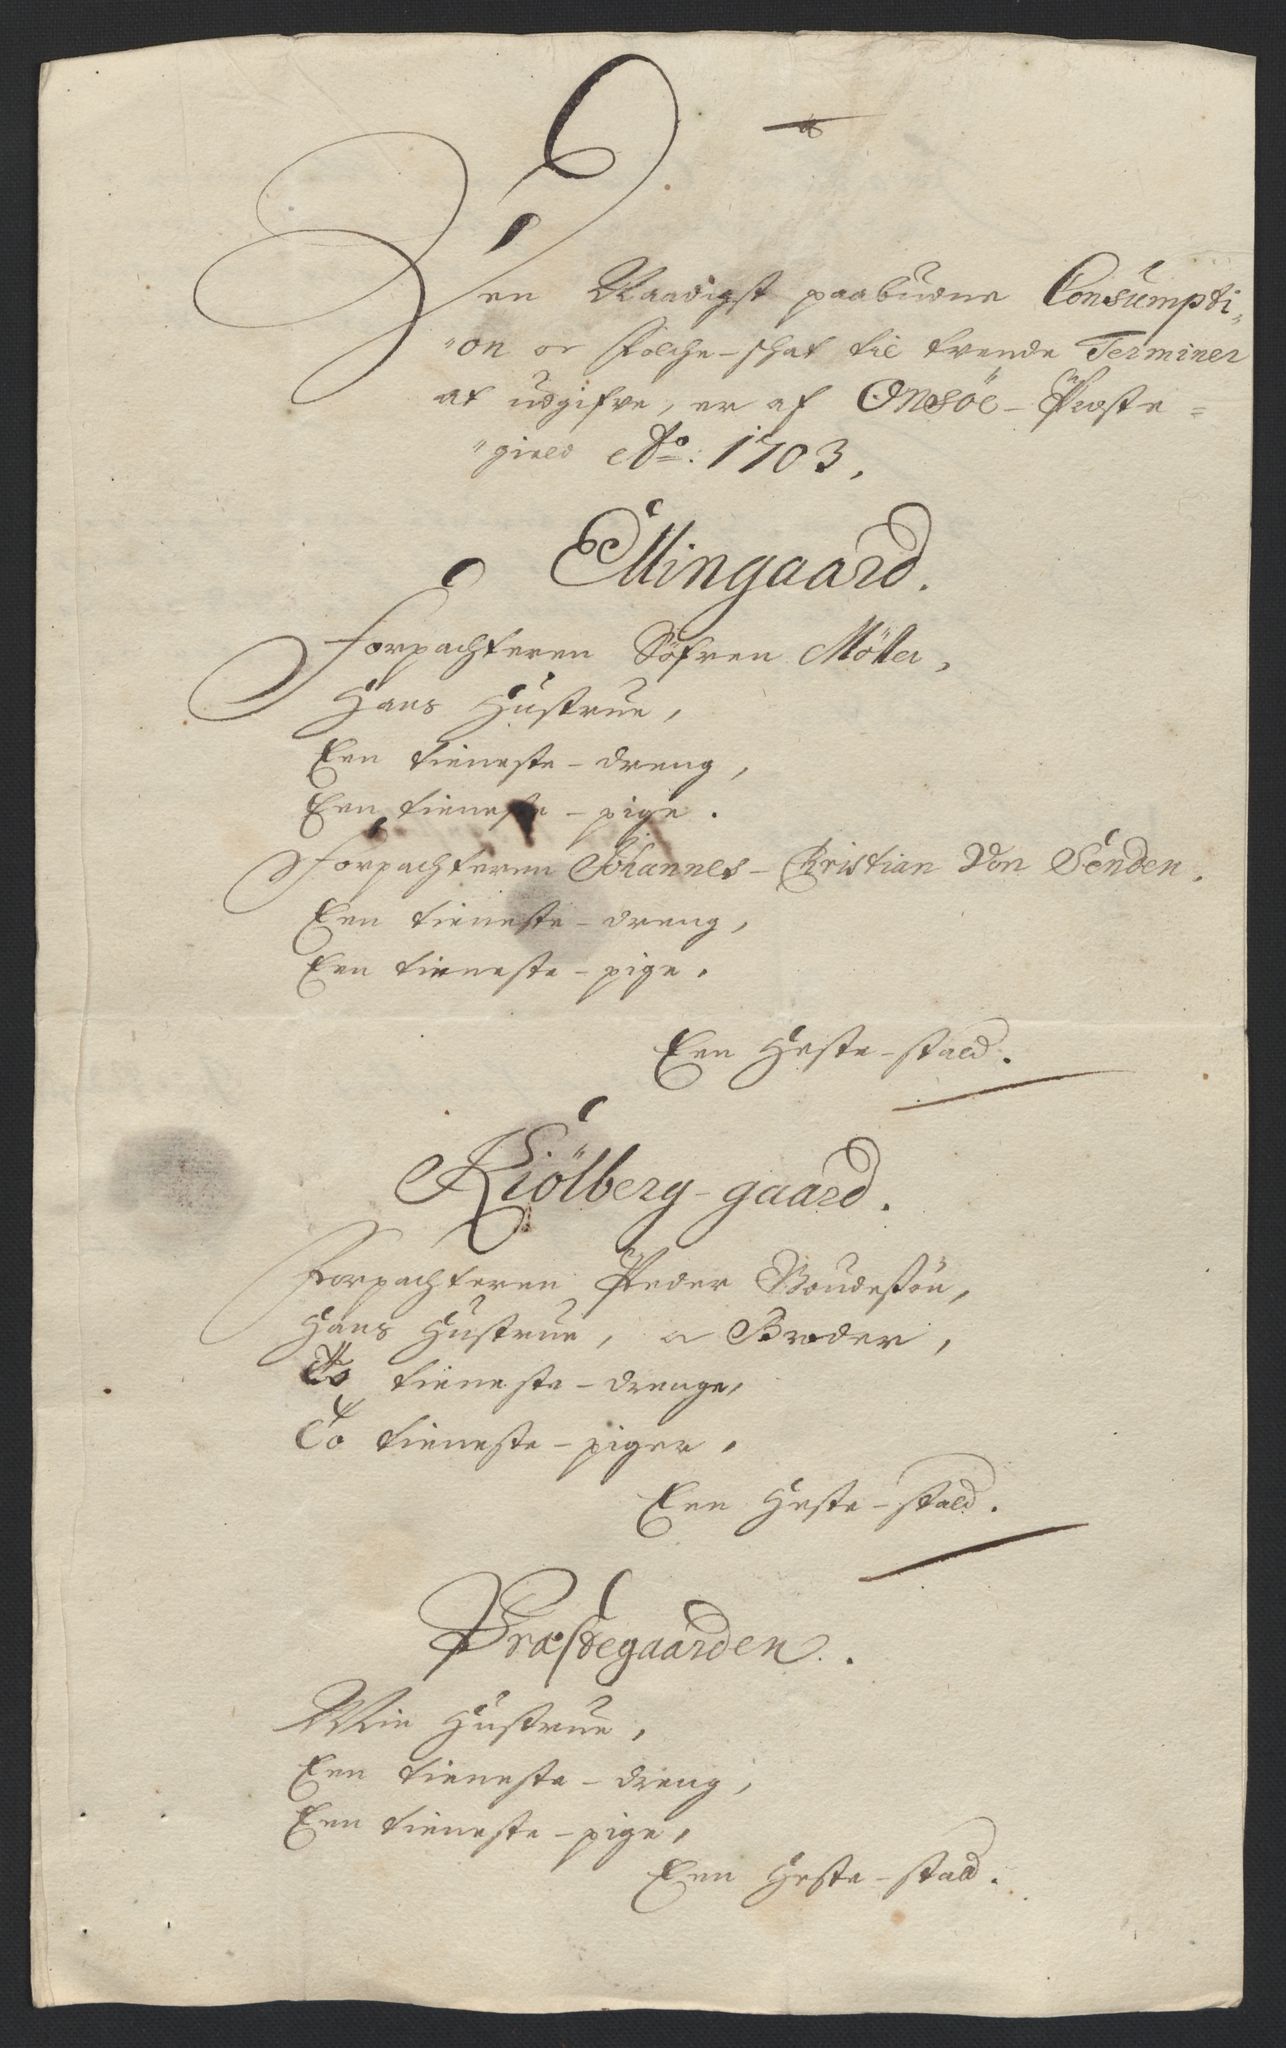 Den Naadigst paabudne Consumpti„
„on oc Folche-schat til trende Terminer
at udgifve, er af Onsöe-Præste=
„gield Ao: 1703,
Ellingaard.
Forpachteren Söfren Möller,
Hans Hustrue,
Een tieneste-dreng,
Een tieneste-pige.
Forpachteren Johannes-Kristian Von Sönden.
Een tieneste-dreng,
Een tieneste-pige.
Een Heste-stald.
Kiölberg-gaard.
Forpachteren Peder
Hans Hustrue, oc Broder,
To tieneste-drenge,
To tieneste-piger.
Een Heste-stald.
Præstegaarden.
Min Hustrue,
Een tieneste-dreng,
Een tieneste-pige,
Een Heste-stald.